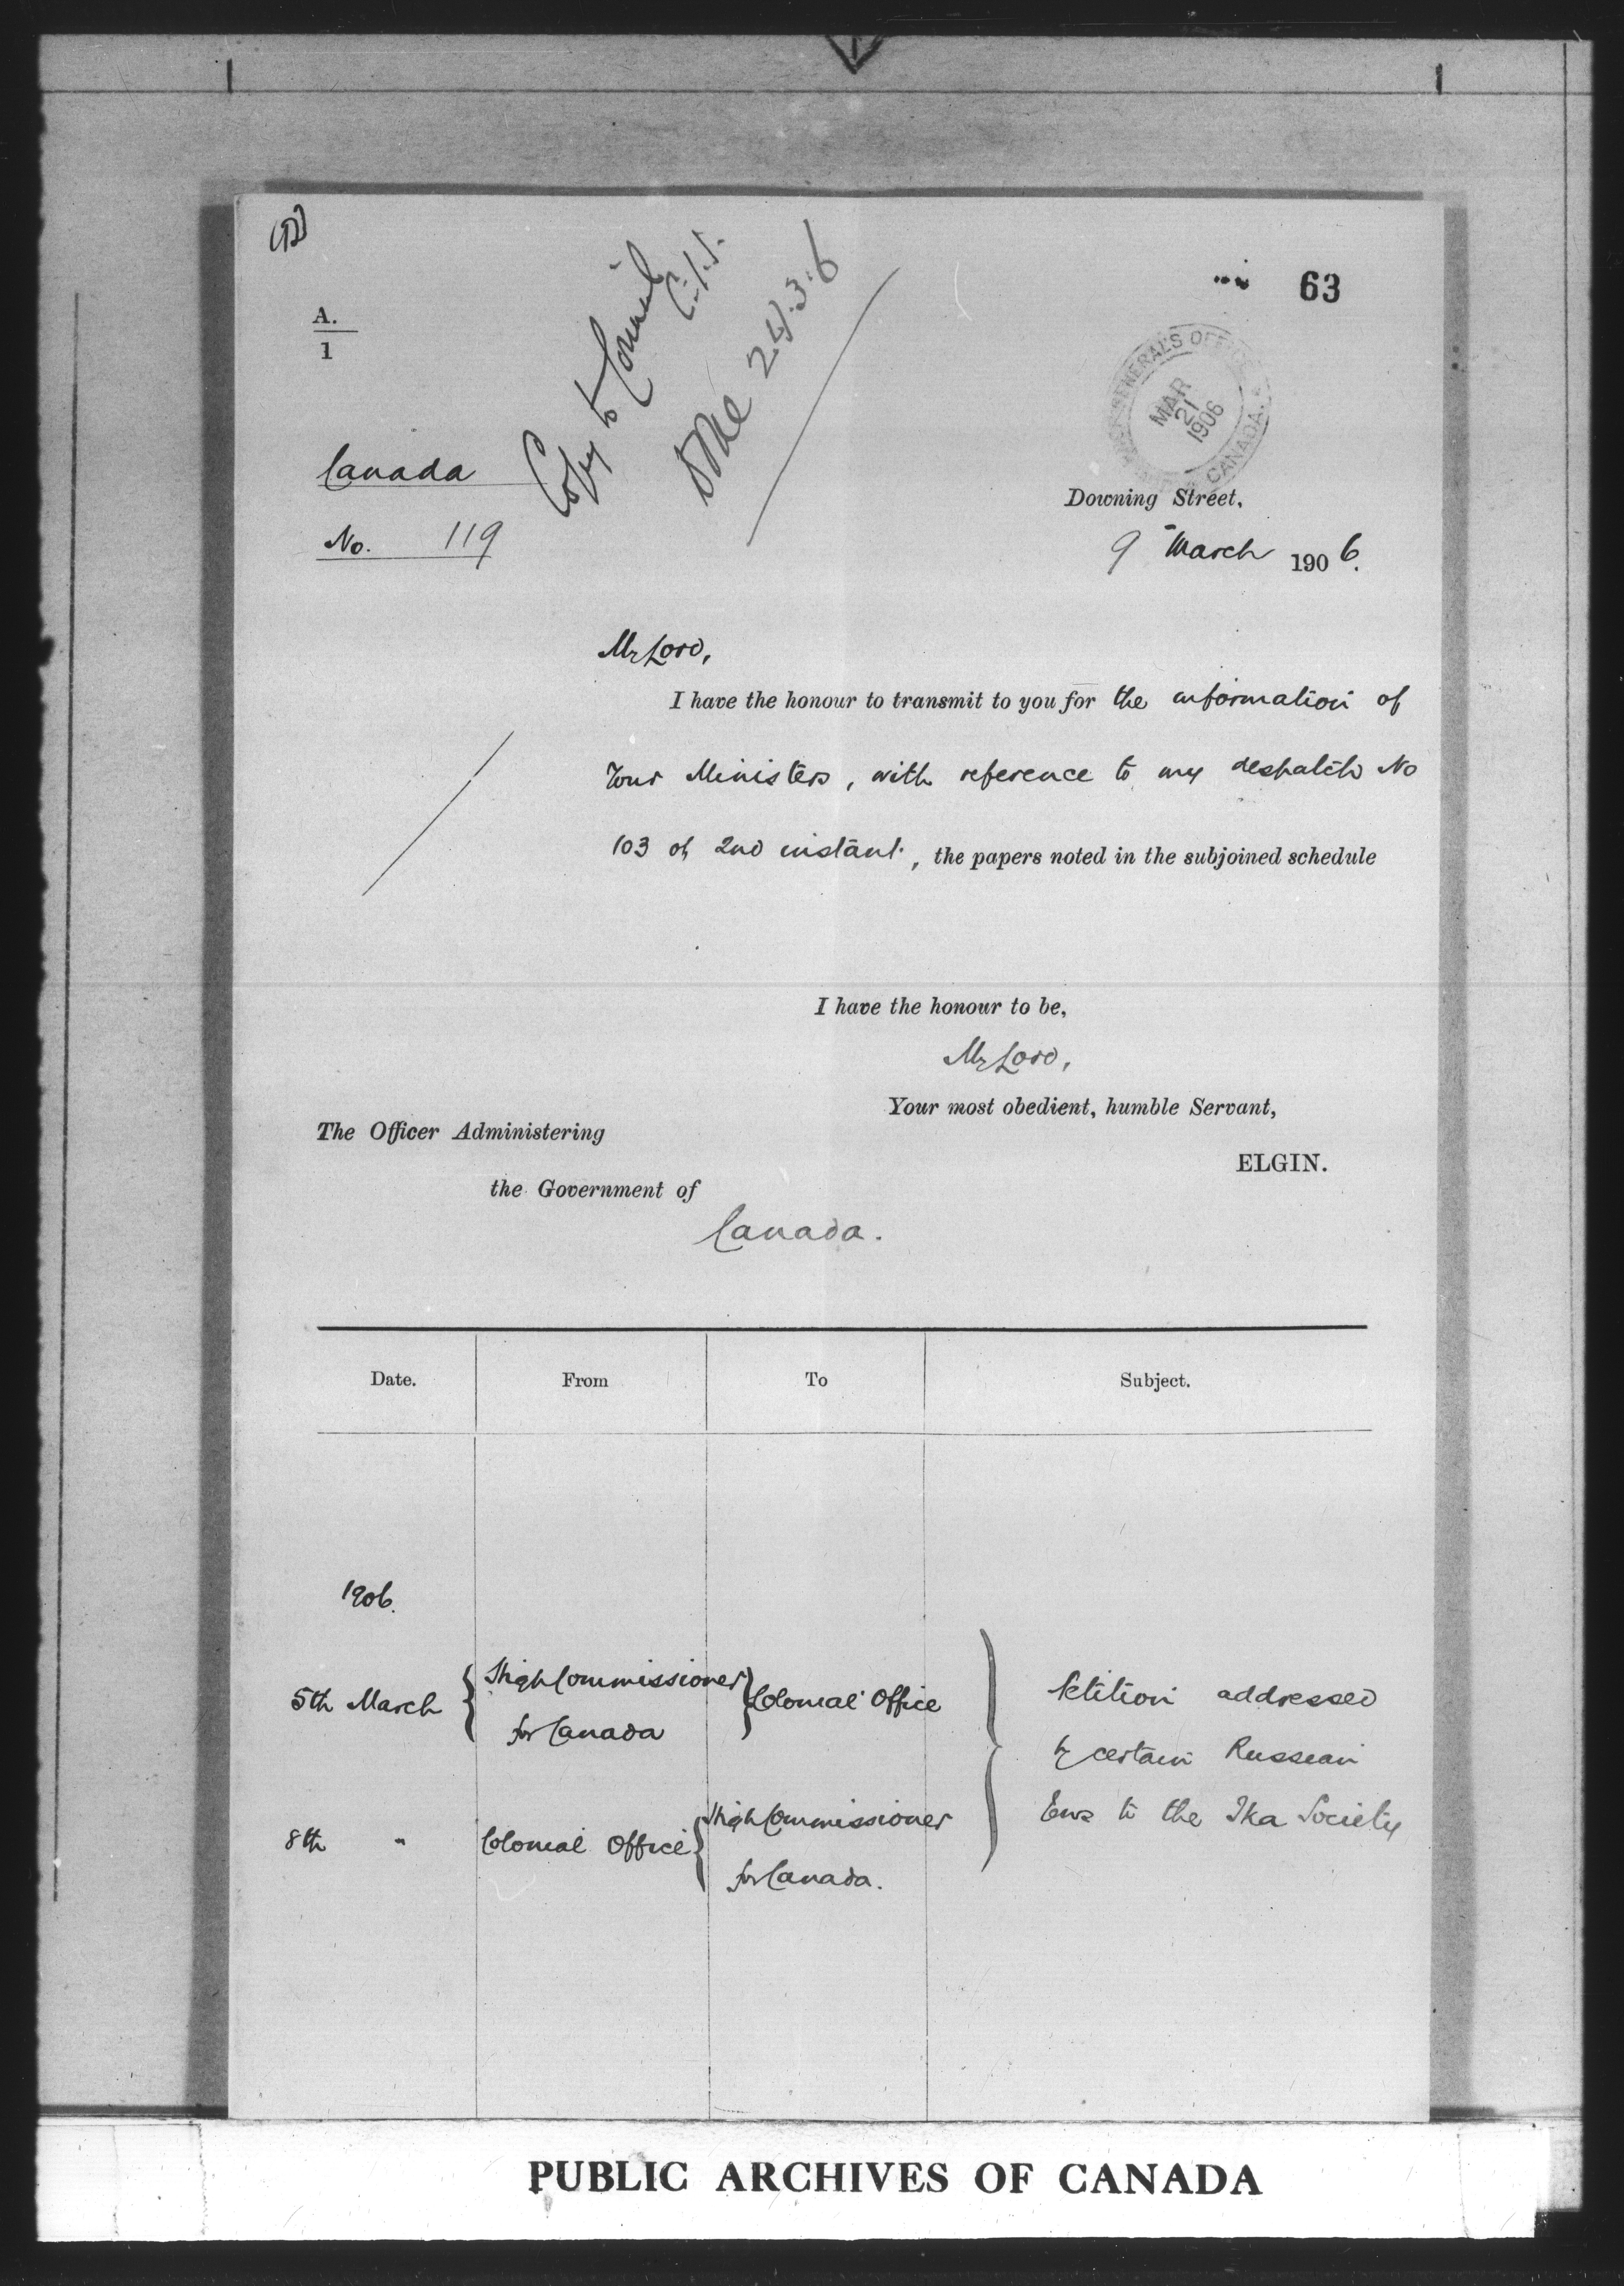 63
A.
1
Copy to Council
24.3.6
GENERAL'S OFFICE
CANADA.
MAR
21
1906
Canada
No. 119
Downing Street,
9 March 1906.
My Lord,
I have the honour to transmit to you for the information of
Your Ministers, with reference to my despatch No
103 of 2nd instant, the papers noted in the subjoined schedule
I have the honour to be,
My Lord,
Your most obedient, humble Servant,
ELGIN.
The Officer Administering
the Government of
Canada.
Date. From To Subject.
1906.
5th March { High Commissioner for Canada } Colonial Office
8th " Colonial Office { High Commissioner for Canada.
Petition addressed
by certain Russian
Jews to the Ika Society
PUBLIC ARCHIVES OF CANADA